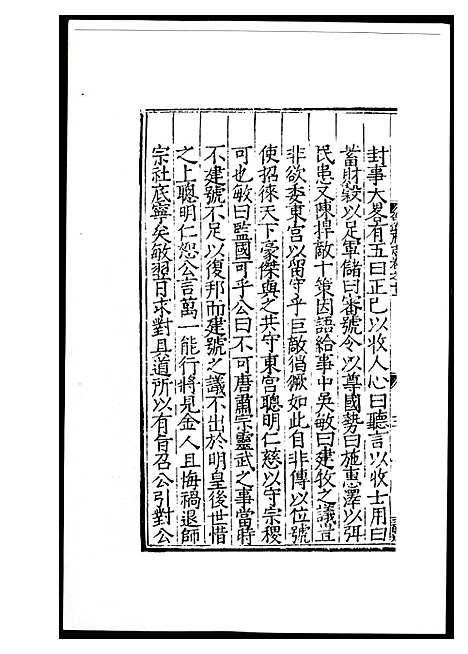 封事大畧有五曰正己以收人心曰聽言以收士用曰
蓄財穀以足軍儲曰審號令以尊國勢曰施惠澤以弭
民患又陳捍敵十策因語給事中吳敏曰建牧之議豈
非欲委東宮以留守乎巨敵猖獗如此自非傳以位號
使招徠天下豪傑與之共守東宮聰明仁慈以守宗稷
可也敏曰監國可乎公曰不可唐肅宗靈武之事當時
不建號不足以復邦而建號之議不出於明皇後世惜
之上聰明仁恕公言萬一能行將見金人且悔禍退師
宗社底寧矣敏翌日求對具道所以有旨召公引對公